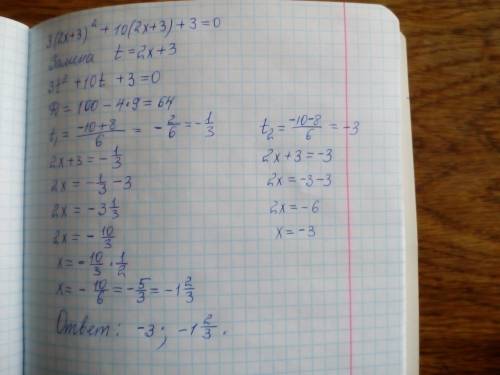 3(2x+3)² + 10(2x+3) + 3 = 0
Замена t = 2x + 3
3t² + 10t + 3 = 0
D = 100 - 4·9 = 64
t₁ = (-10+8)/6 = -2/6 = -1/3
2x+3 = -1/3
2x = -1/3 - 3
2x = -3 1/3
2x = -10/3
x = -10/3 · 1/2
x = -10/6 = -5/3 = -1 2/3
t₂ = (-10-8)/6 = -3
2x+3 = -3
2x = -3-3
2x = -6
x = -3
Ответ: -3; -1 2/3.